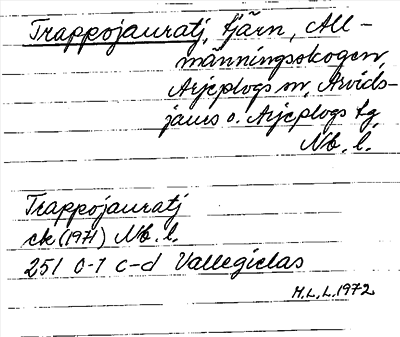 Trappojauratj, tjärn, All-
männingsskogen,
Arjeplogs m, Arvids-
jaurs o. Arjeplogs tg
Nb. l.
Trappojauratj
ek (1971) Nb. l.
251 0-1 c-d Vallegielas
H.L.L. 1972